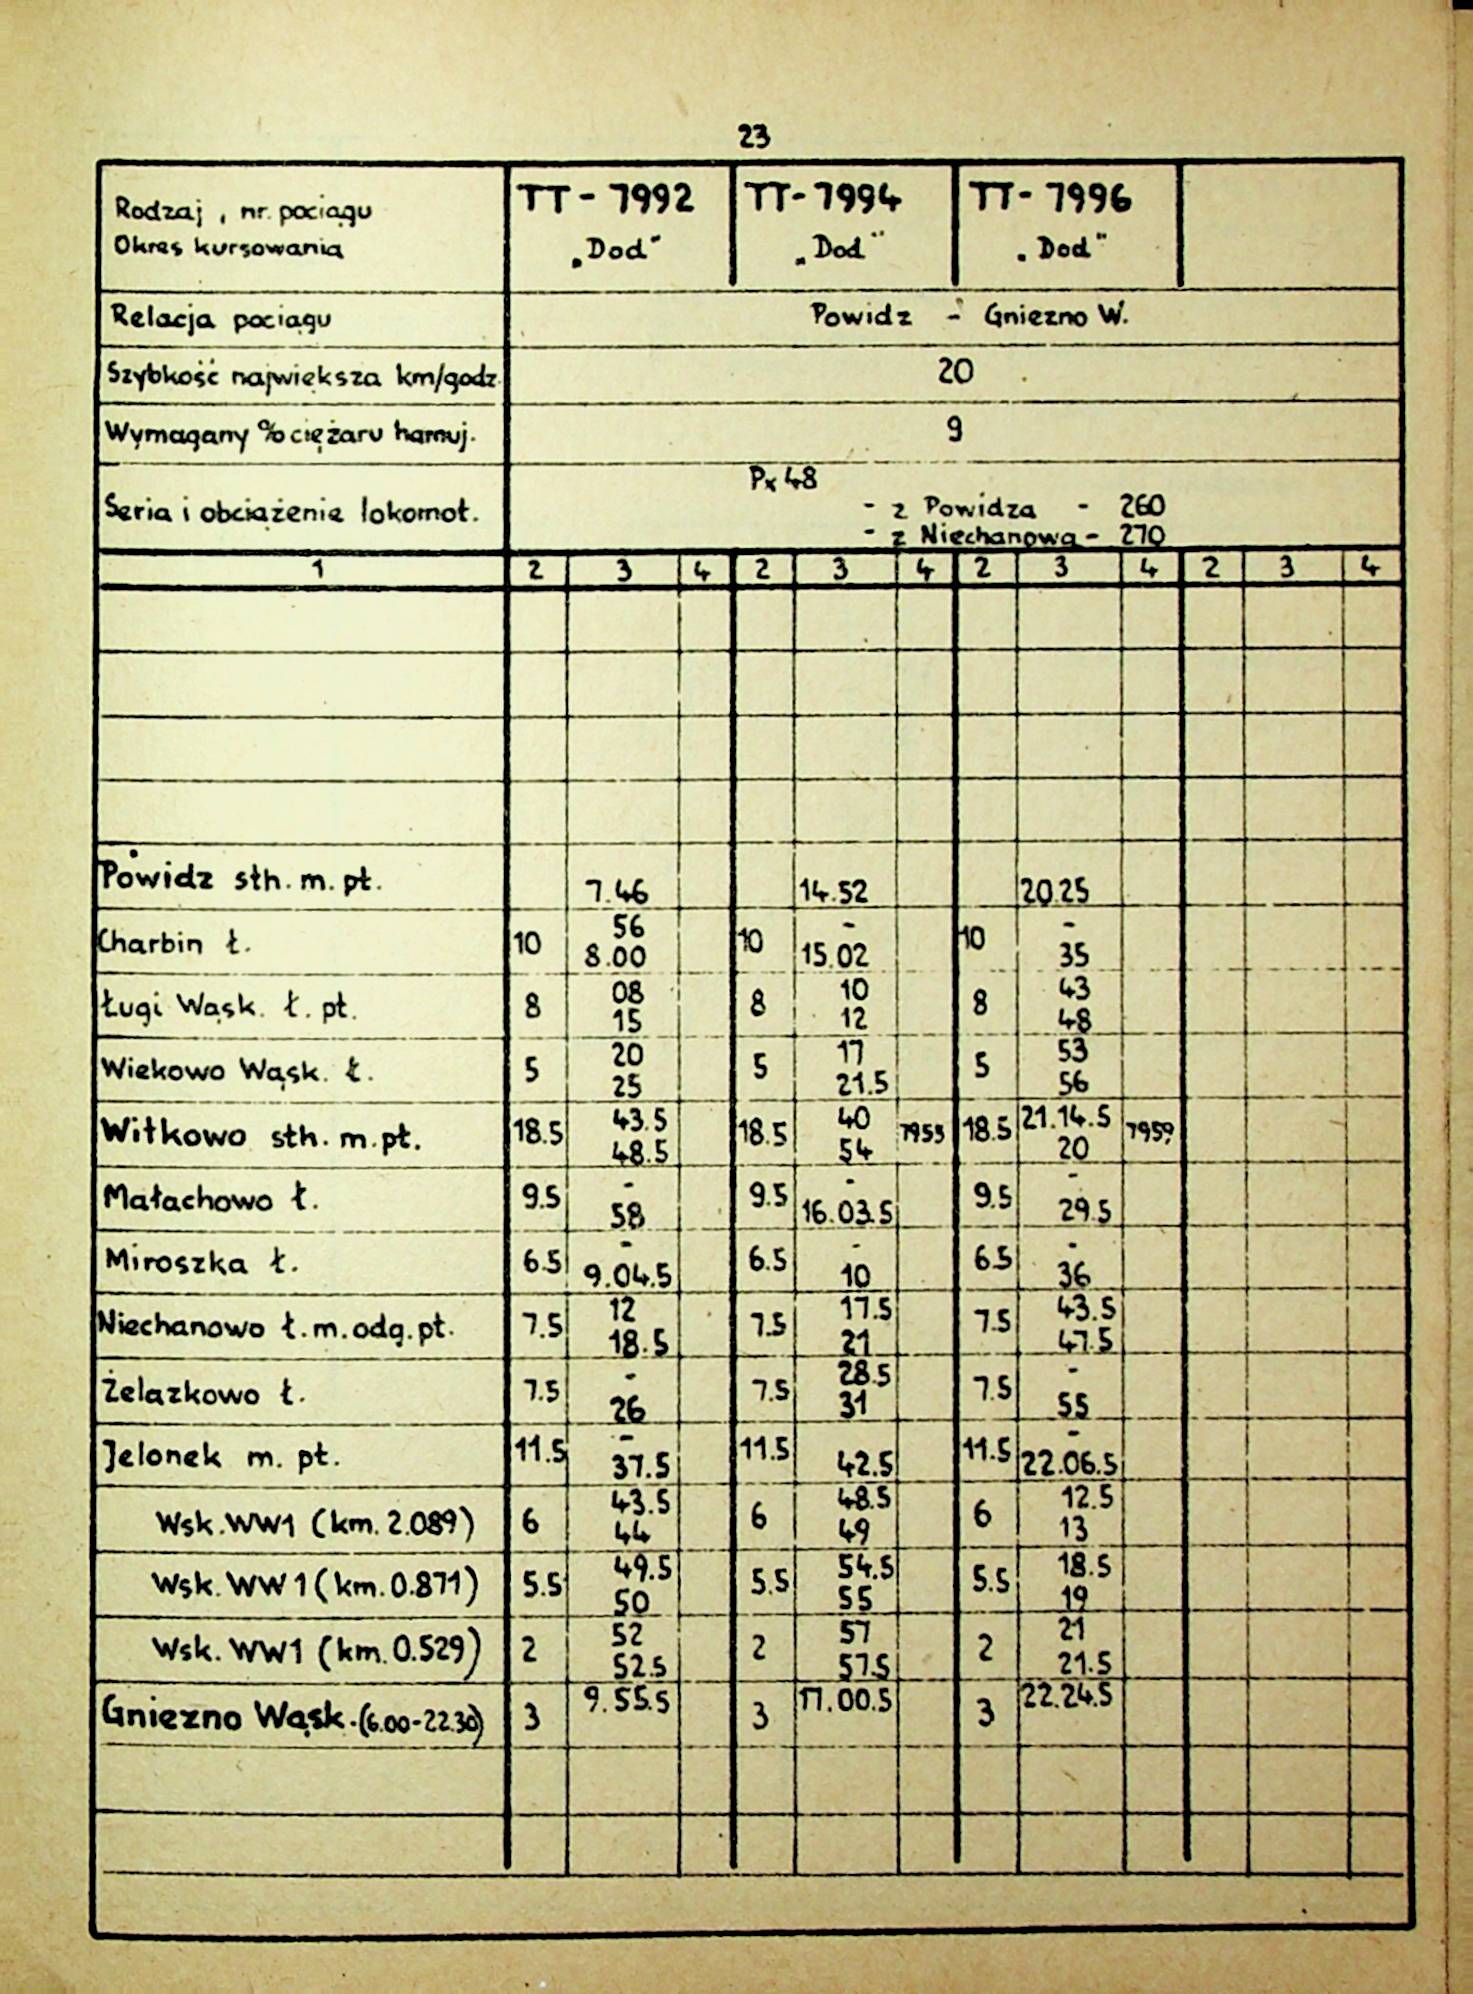 23
Rodzaj, nr. pociągu TT - 7992 TT - 7994 TT - 7996
Okres kursowania „Dod" „Dod" „Dod"
Relacja pociągu Powidz - Gniezno W.
Szybkość największa km/godz. 20
Wymagany % ciężaru hamuj. 9
Px 48
Seria i obciążenie lokomot. - z Powidza - 260
- z Niechanowa - 270
1 2 3 4 2 3 4 2 3 4 2 3 4
Powidz sth. m. pt. 7.46 14.52 20.25
Charbin ł. 10 56 10 - 10 -
8.00 15.02 35
Ługi Wąsk. ł. pt. 8 08 8 10 8 43
15 12 48
Wiekowo Wąsk. ł. 5 20 5 17 5 53
25 21.5 56
Witkowo sth. m. pt. 18.5 43.5 18.5 40 7953 18.5 21.14.5 7959
48.5 54 20
Małachowo ł. 9.5 - 9.5 - 9.5 -
58 16.03.5 29.5
Miroszka ł. 6.5 - 6.5 - 6.5 -
9.04.5 10 36
Niechanowo ł. m. odg. pt. 7.5 12 7.5 17.5 7.5 43.5
18.5 21 47.5
Żelazkowo ł. 7.5 - 7.5 28.5 7.5 -
26 31 55
Jelonek m. pt. 11.5 - 11.5 11.5 -
37.5 42.5 22.06.5
Wsk. WW1 (km. 2.089) 6 43.5 6 48.5 6 12.5
44 49 13
Wsk. WW1 (km. 0.871) 5.5 49.5 5.5 54.5 5.5 18.5
50 55 19
Wsk. WW1 (km. 0.529) 2 52 2 57 2 21
52.5 57.5 21.5
Gniezno Wąsk. (6.00-22.30) 3 9.55.5 3 17.00.5 3 22.24.5